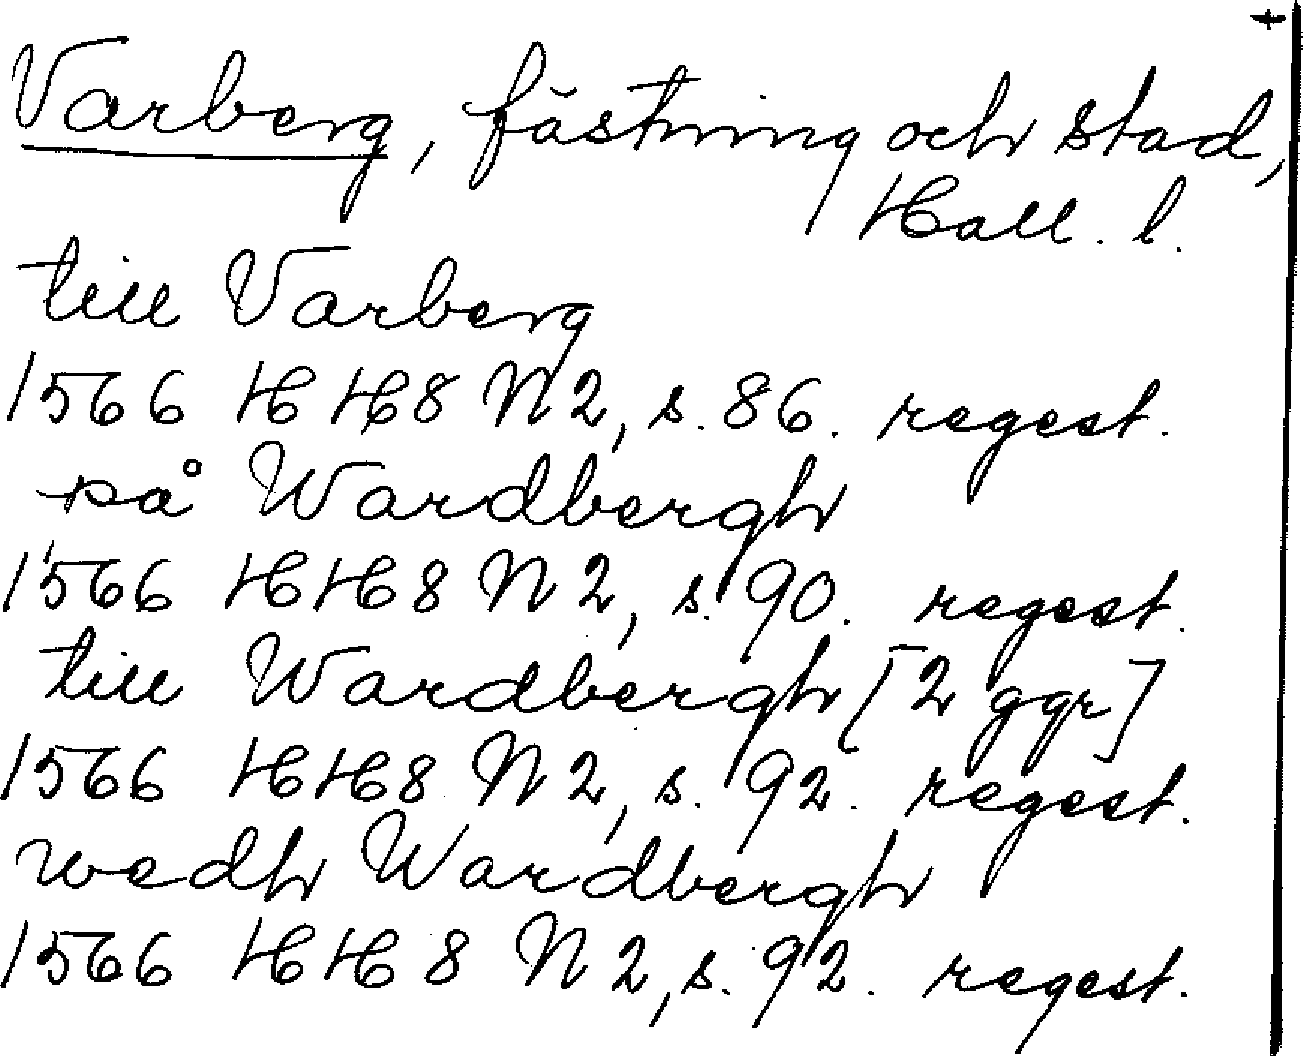 Varberg, fästning och stad,
Hall. l.
till Varberg
1566 HH8 N2, s. 86. regest.
på Wardbergh
1566 HH8 N2, s. 90. regest.
till Wardbergh [2 ggr]
1566 HH8 N2, s. 92. regest.
wedh Wardbergh
1566 HH8 N2, s. 92. regest.